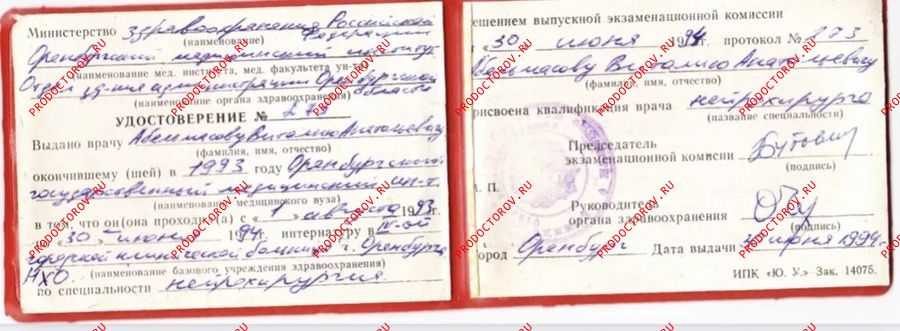 Министерство здравоохранения Российской
Федерации
(наименование)
Оренбургский медицинский институт
(наименование мед. института, мед. факультета ун-та)
Отдел администрации Оренбургской
области
(наименование органа здравоохранения)
УДОСТОВЕРЕНИЕ № 273
Выдано врачу Абельмасову Виталию Анатольевичу
(фамилия, имя, отчество)
окончившему (шей) в 1993 году Оренбургский
государственный медицинский ин-т
(наименование медицинского вуза)
в том, что он(она проходил(а) с «1» августа 1993г.
«30» июня 1994г. интернатуру в
городской клинической больнице г. Оренбурга,
НХО
(наименование базового учреждения здравоохранения)
по специальности нейрохирургия
ешением выпускной экзаменационной комиссии
«30 июня 1994г. протокол № 273
Абельмасову Виталию Анатольевичу
(фамилия, имя, отчество)
рисвоена квалификация врача нейрохирурга
(название специальности)
Председатель
экзаменационной комиссии
(подпись)
. П.
Руководитель
органа здравоохранения
(подпись)
ород Оренбург Дата выдачи 30 июня 1994г.
ИПК «Ю. У.» Зак. 14075.
PRODOCTOROV.RU